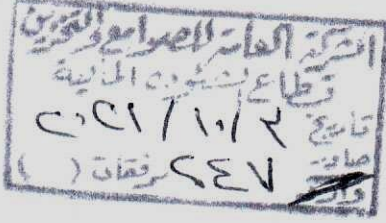 الشركة العامة للصوامع والتخزين
قطاع الشئون المالية
تاريخ ٢٠٢١/١٠/٣
صادر ٢٤٧ مرفقات ( )
وارد